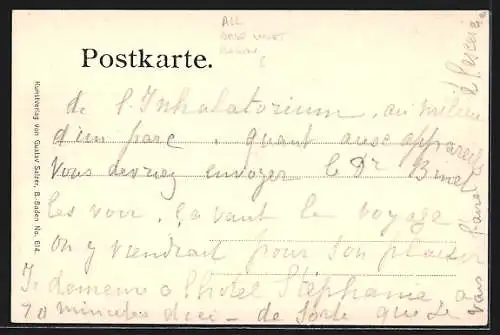 ALL
Postkarte.
de l'Inhalatorium, au milieu
d'un parc, quant aux appareils
vous devriez envoyer le Dr Binet
les voir, ça vaut le voyage
on y viendrait pour son plaisir
Je demeure à l'hotel Stéphanie a
10 minutes d'ici - de sorte que je
vais faire
Kunstverlag von Gustav Salzer, B.-Baden No. 614.